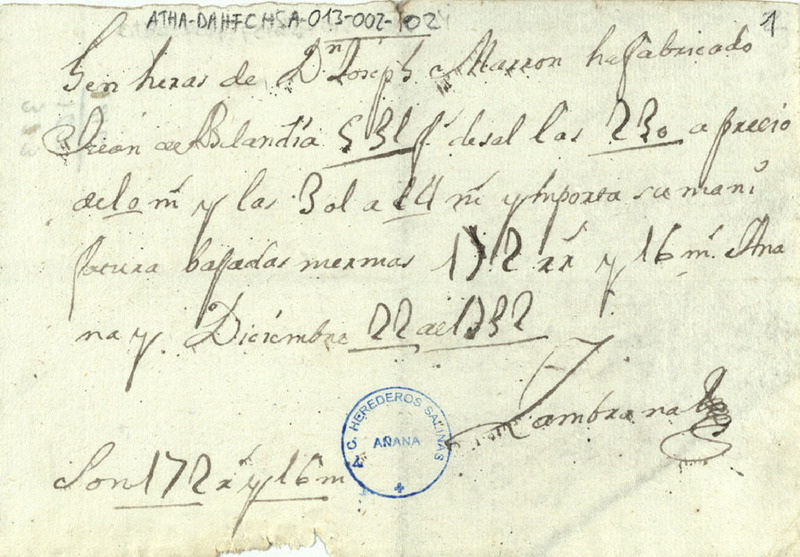 ATHA-DAHFCHSA-013-002-102
1
En heras de Dn Joseph Marron ha fabricado
Juan de Belandia 531 f. de sal las 230 a precio
de 10 ms y las 301 a 14 ms y Importa su mani
fatura bajadas mermas 172 rs y 16 ms. Aña
na y Diciembre 22 de 1732
Zambrana
A. C. HEREDEROS SALINAS
AÑANA
Son 172 rs y 16 ms